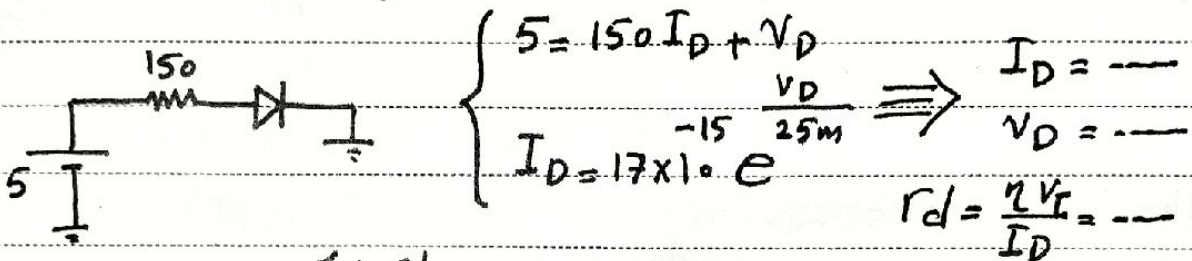 150
5
5 = 150 I_D + V_D
I_D = 17×10^-15 e^(V_D/25m)
⇒
I_D = ----
V_D = ----
r_d = ηV_T/I_D = ----